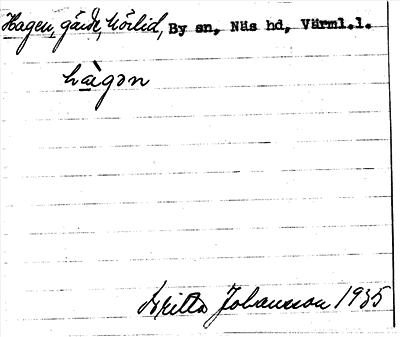 Hagen, gård, Hörlid, By sn, Näs hd, Värml.l.
hàgən
Britta Johansson 1935